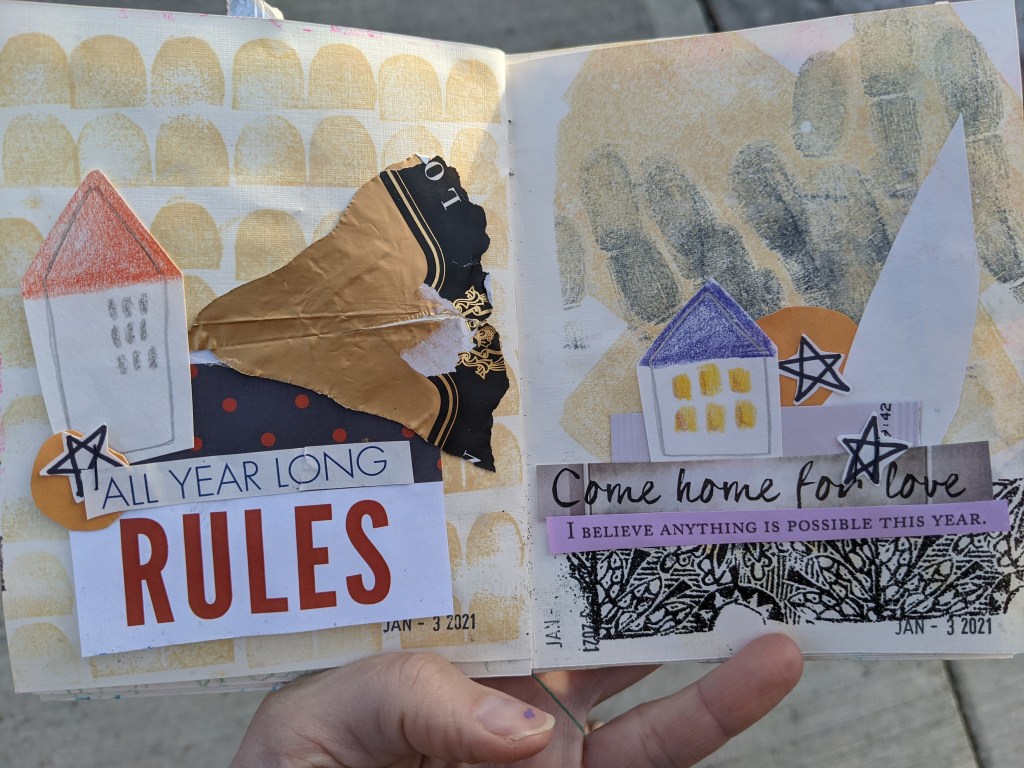 LO
ALL YEAR LONG
RULES
JAN - 3 2021
:42
Come home for love
I BELIEVE ANYTHING IS POSSIBLE THIS YEAR.
JAN - 3 2021